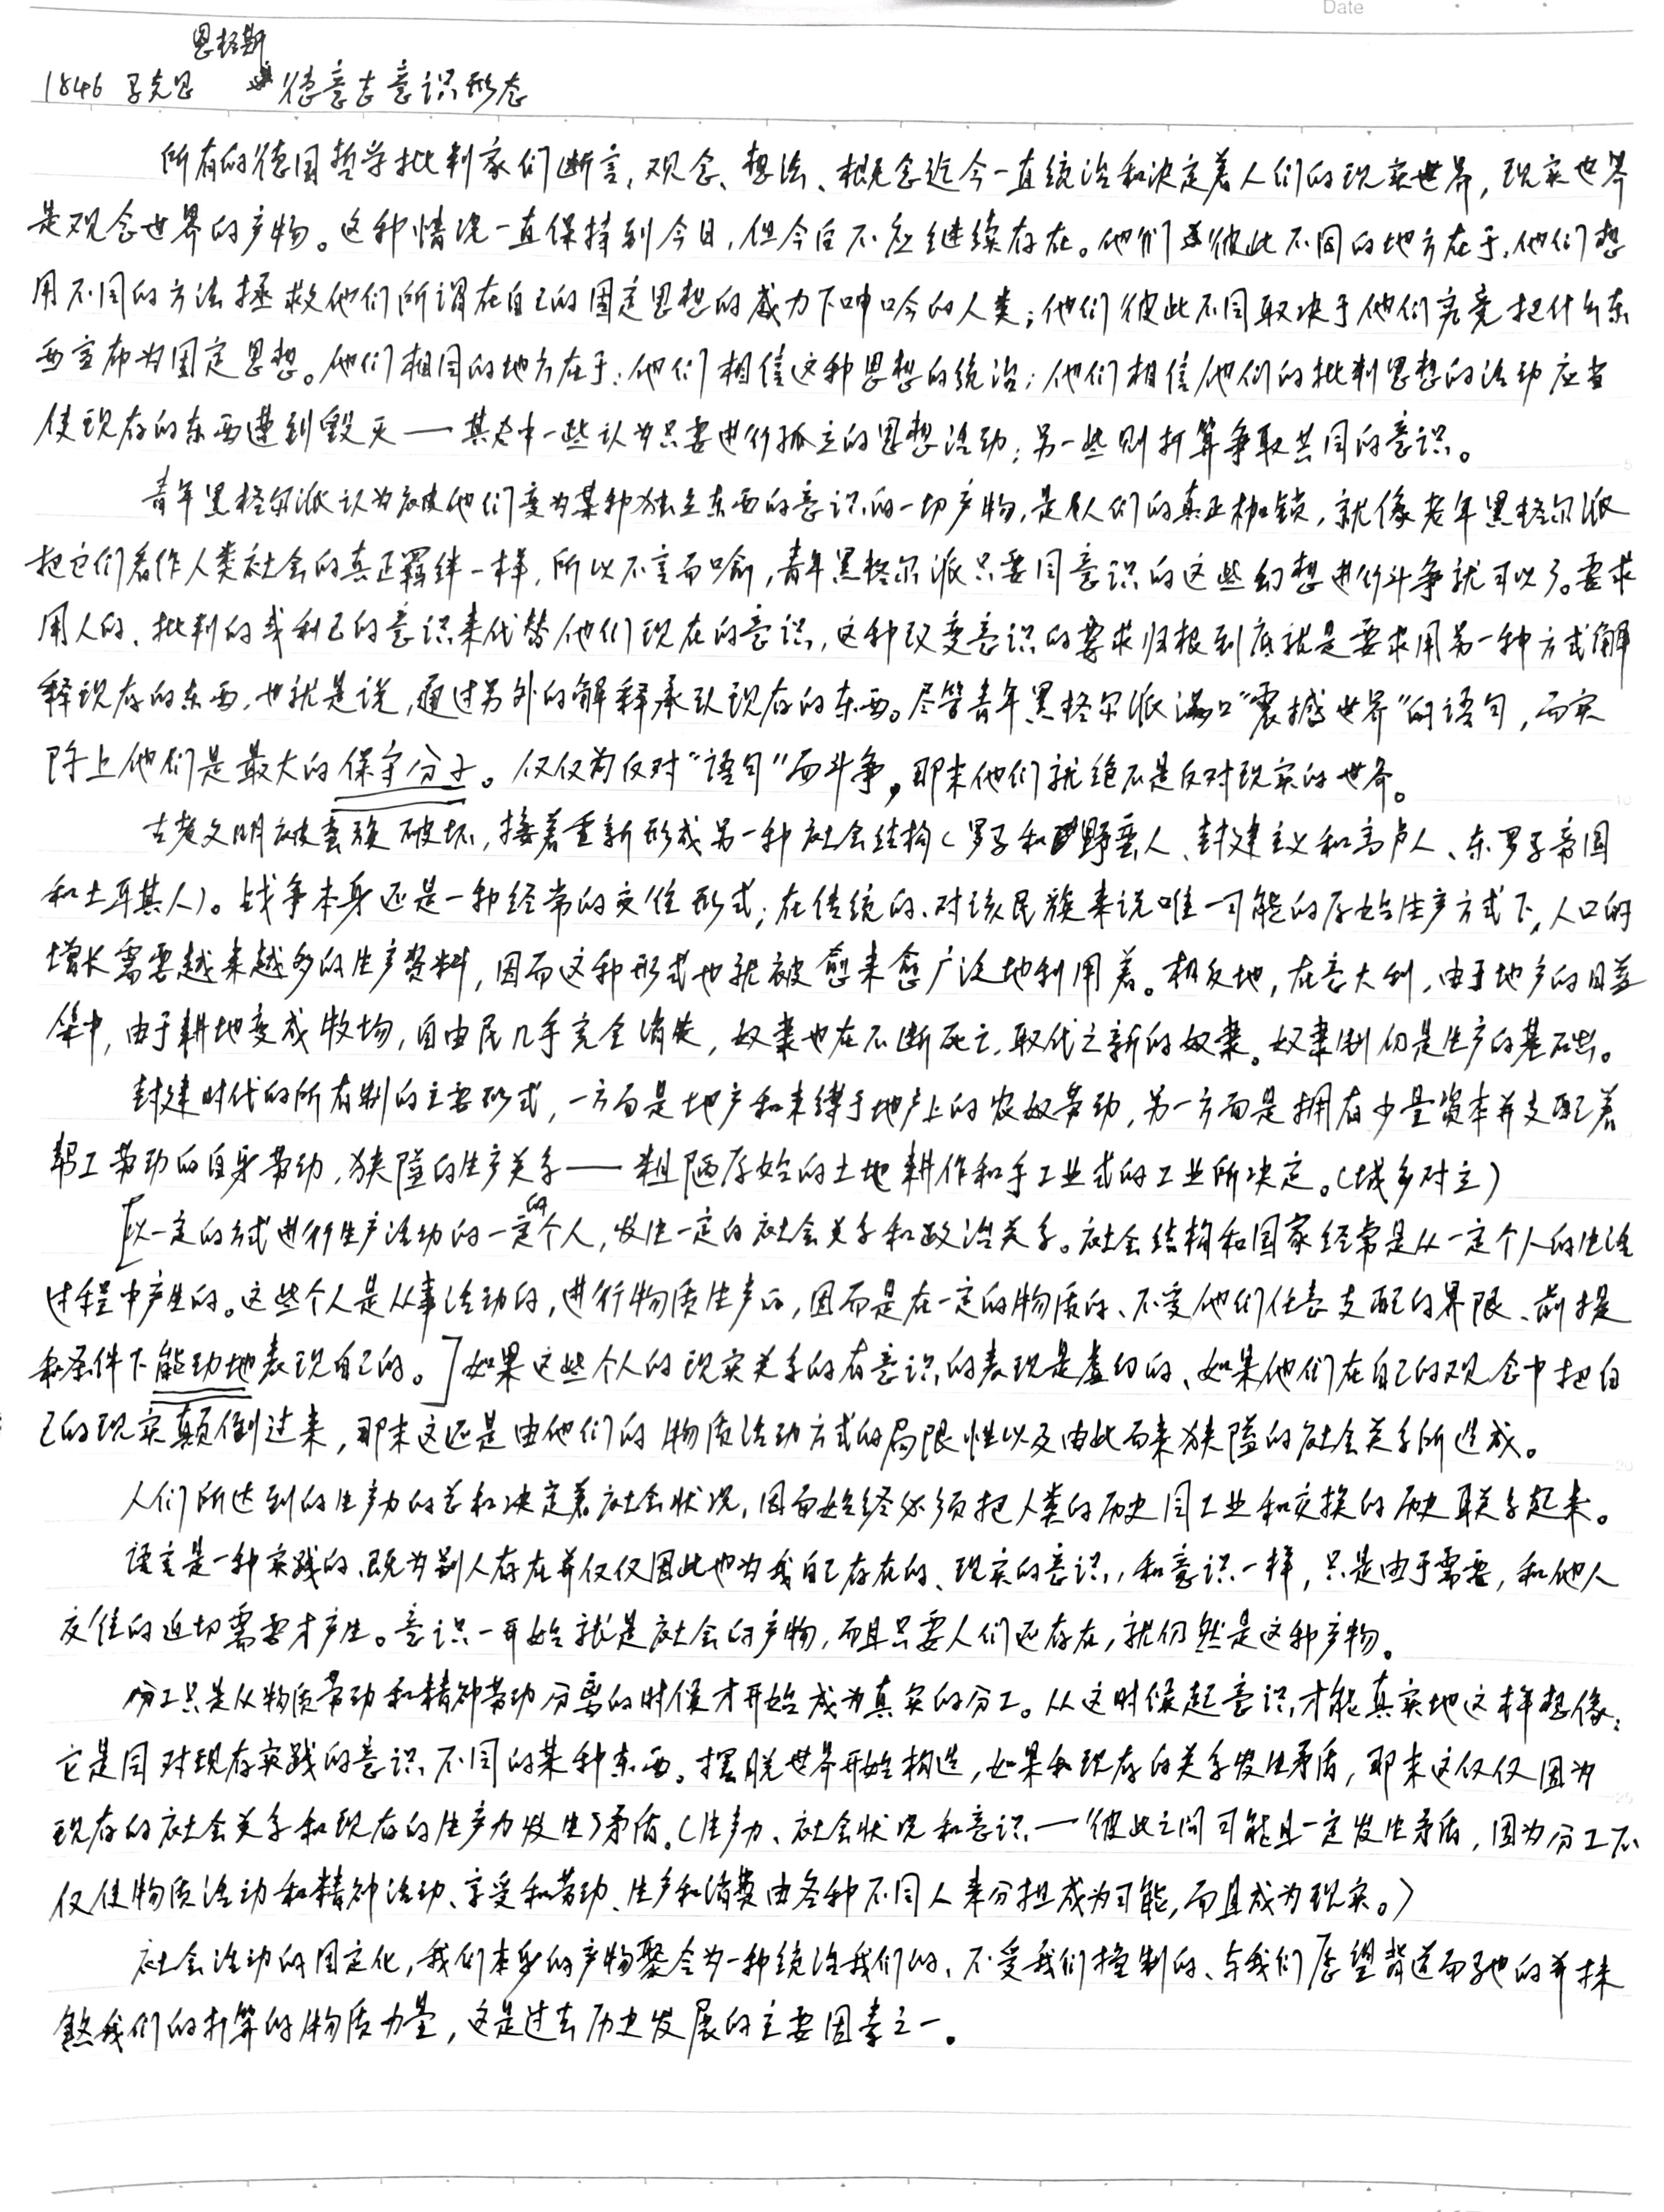 Date
恩格斯
1846 马克思 德意志意识形态
所有的德国哲学批判家们断言,观念、想法、概念迄今一直统治和决定着人们的现实世界,现实世界
是观念世界的产物。这种情况一直保持到今日,但今后不应继续存在。他们彼此不同的地方在于,他们想
用不同的方法拯救他们所谓在自己的固定思想的威力下呻吟的人类;他们彼此不同取决于他们究竟把什么东
西宣布为固定思想。他们相同的地方在于:他们相信这种思想的统治;他们相信他们的批判思想的活动应当
使现存的东西遭到毁灭——其中一些认为只要进行孤立的思想活动;另一些则打算争取共同的意识。
青年黑格尔派认为被他们变为某种独立东西的意识的一切产物,是人们的真正枷锁,就像老年黑格尔派
把它们看作人类社会的真正羁绊一样,所以不言而喻,青年黑格尔派只要同意识的这些幻想进行斗争就可以了。要求
用人的、批判的或利己的意识来代替他们现在的意识,这种改变意识的要求归根到底就是要求用另一种方式解
释现存的东西,也就是说,通过另外的解释承认现存的东西。尽管青年黑格尔派满口“震撼世界”的语句,而实
际上他们是最大的保守分子。仅仅为反对“语句”而斗争,那末他们就绝不是反对现实的世界。
古老文明被蛮族破坏,接着重新形成另一种社会结构(罗马和野蛮人、封建主义和高卢人、东罗马帝国
和土耳其人)。战争本身还是一种经常的交往形式;在传统的、对该民族来说唯一可能的原始生产方式下,人口的
增长需要越来越多的生产资料,因而这种形式也就被愈来愈广泛地利用着。相反地,在意大利,由于地产的日益
集中,由于耕地变成牧场,自由民几乎完全消失,奴隶也在不断死亡,取代之新的奴隶。奴隶制仍是生产的基础。
封建时代的所有制的主要形式,一方面是地产和束缚于地产上的农奴劳动,另一方面是拥有少量资本并支配着
帮工劳动的自身劳动,狭隘的生产关系——粗陋原始的土地耕作和手工业式的工业所决定。(城乡对立)
[以一定的方式进行生产活动的一定的个人,发生一定的社会关系和政治关系。社会结构和国家经常是从一定个人的生活
过程中产生的。这些个人是从事活动的,进行物质生产的,因而是在一定的物质的、不受他们任意支配的界限、前提
和条件下能动地表现自己的。]如果这些个人的现实关系的有意识的表现是虚幻的、如果他们在自己的观念中把自
己的现实颠倒过来,那末这还是由他们的物质活动方式的局限性以及由此而来狭隘的社会关系所造成。
人们所达到的生产力的总和决定着社会状况,因而始终必须把人类的历史同工业和交换的历史联系起来。
语言是一种实践的、既为别人存在并仅仅因此也为我自己存在的、现实的意识,和意识一样,只是由于需要,和他人
交往的迫切需要才产生。意识一开始就是社会的产物,而且只要人们还存在,就仍然是这种产物。
分工只是从物质劳动和精神劳动分离的时候才开始成为真实的分工。从这时候起意识才能真实地这样想像:
它是同对现存实践的意识不同的某种东西。摆脱世界开始构造,如果和现存的关系发生矛盾,那末这仅仅因为
现存的社会关系和现存的生产力发生了矛盾。(生产力、社会状况和意识——彼此之间可能且一定发生矛盾,因为分工不
仅使物质活动和精神活动、享受和劳动、生产和消费由各种不同人来分担成为可能,而且成为现实。)
社会活动的固定化,我们本身的产物聚合为一种统治我们的、不受我们控制的、与我们愿望背道而驰的并抹
煞我们的打算的物质力量,这是过去历史发展的主要因素之一。